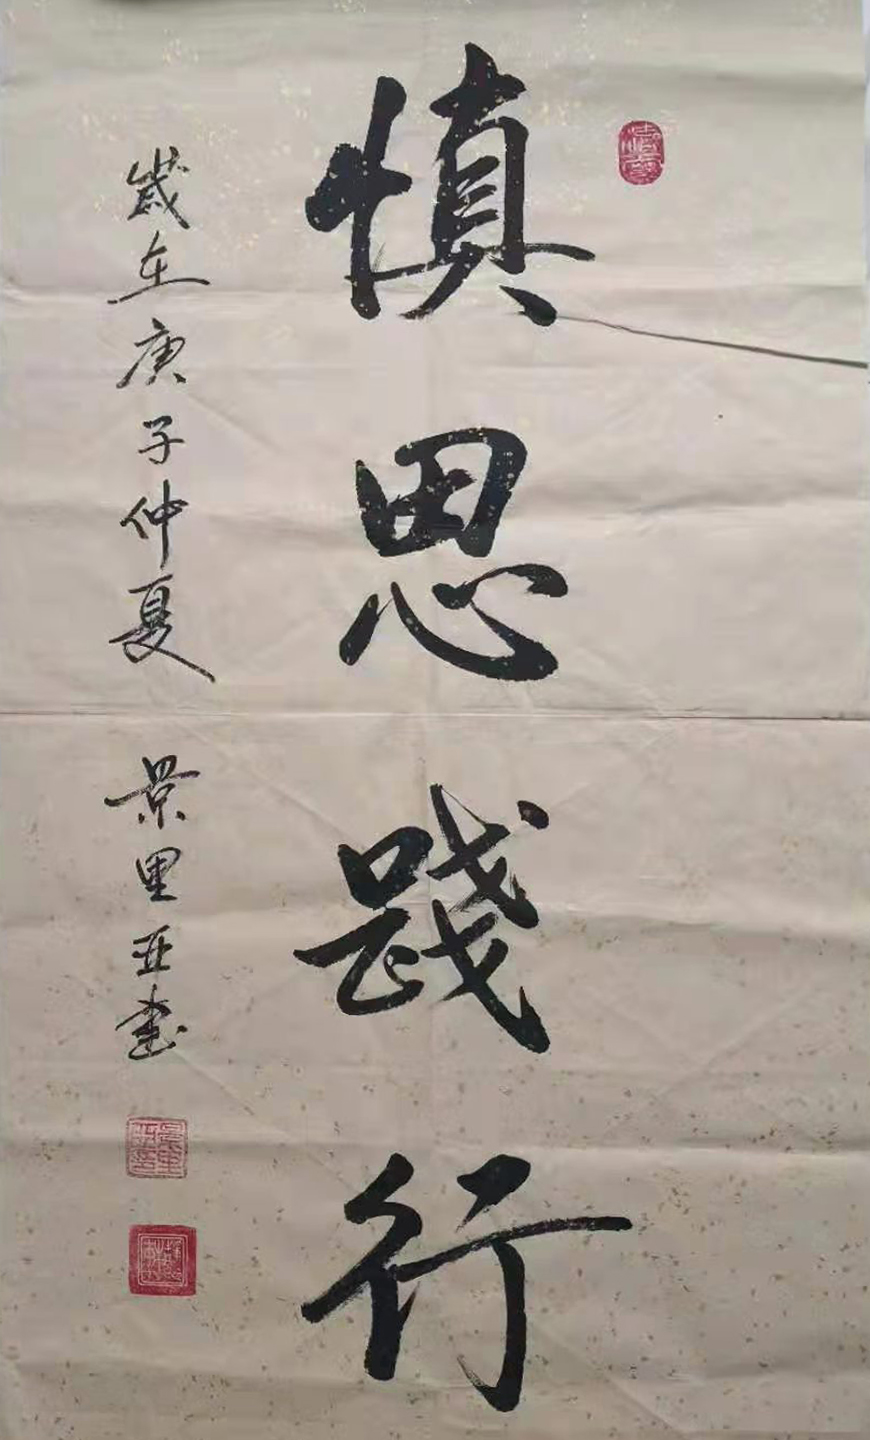 慎思践行
岁在庚子仲夏
景里亚书